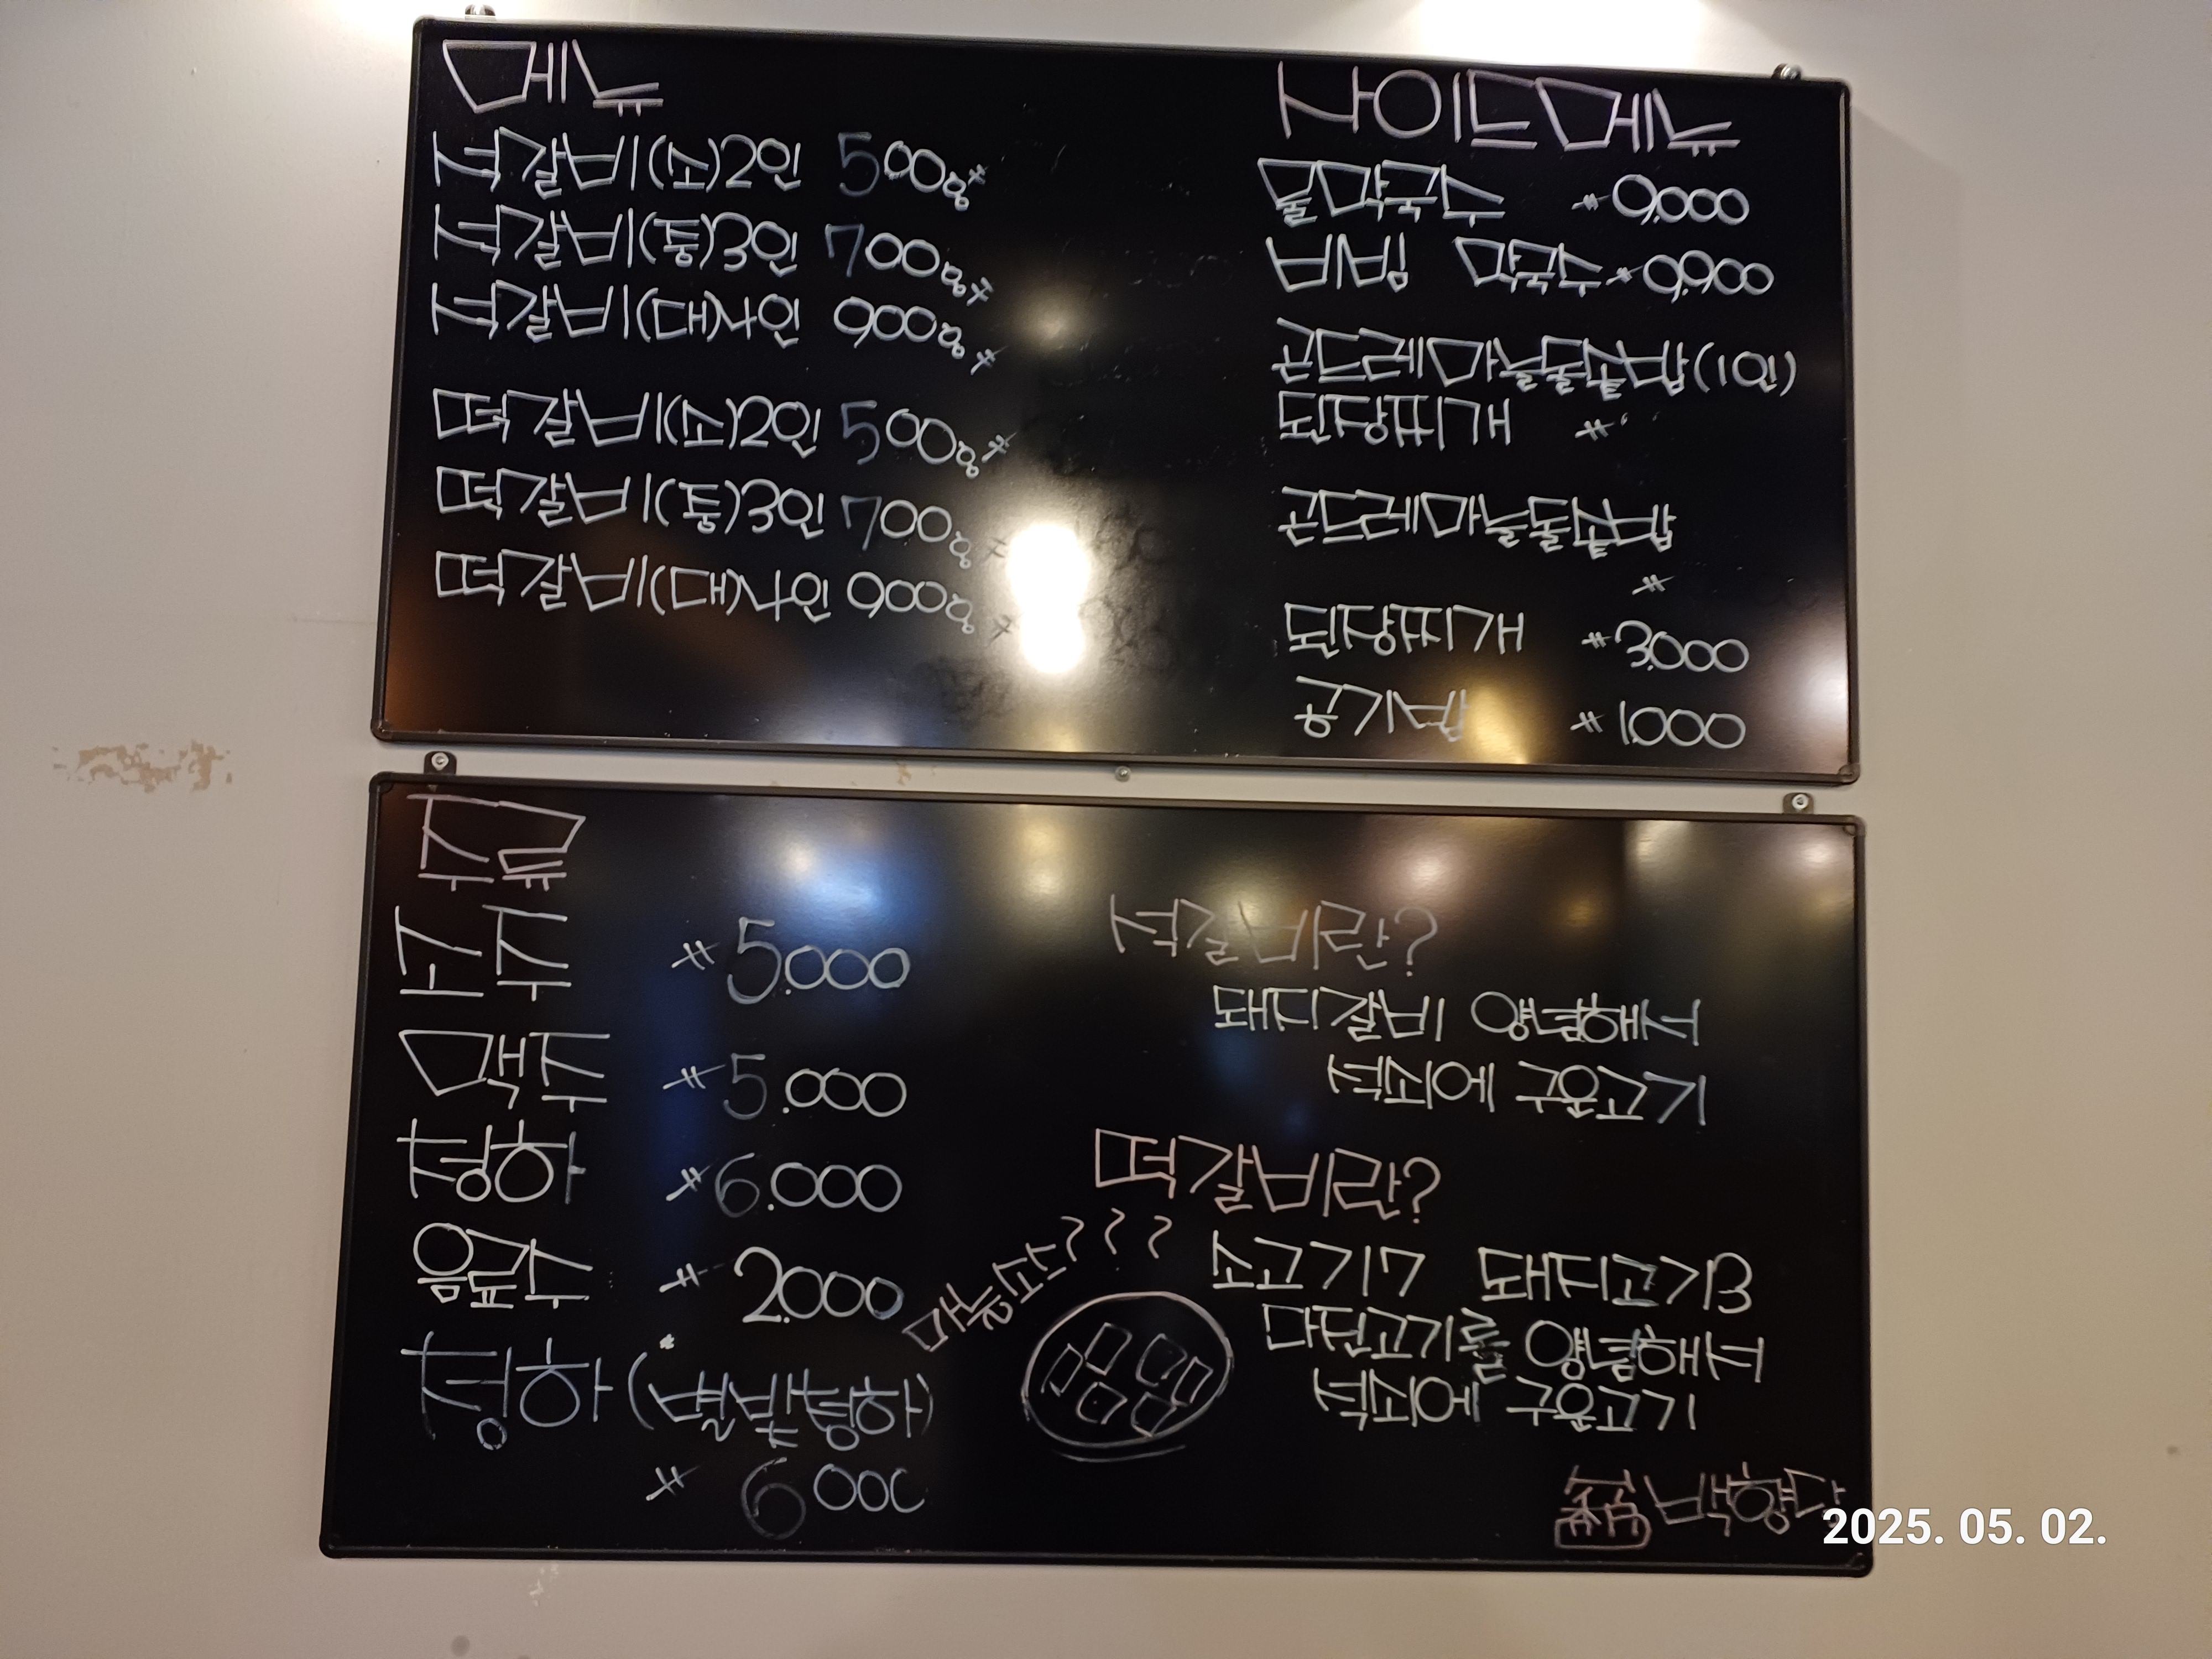 메뉴
석갈비(소)2인 500g ₩
석갈비(통)3인 700g ₩
석갈비(대)4인 900g ₩
떡갈비(소)2인 500g ₩
떡갈비(통)3인 700g ₩
떡갈비(대)4인 900g ₩
사이드메뉴
물막국수 ₩9,000
비빔 막국수 ₩9,900
곤드레마늘돌솥밥(1인)
된장찌개 ₩
곤드레마늘돌솥밥
₩
된장찌개 ₩3,000
공기밥 ₩1000
주류
소주 ₩5.000
맥주 ₩5.000
청하 ₩6.000
음료수 ₩2.000
청하(별빛청하)
₩6000
석갈비란?
돼지갈비 양념해서
석쇠에 구운고기
떡갈비란?
소고기7 돼지고기3
다진고기를 양념해서
석쇠에 구운고기
마늘소스???
백향다
2025. 05. 02.